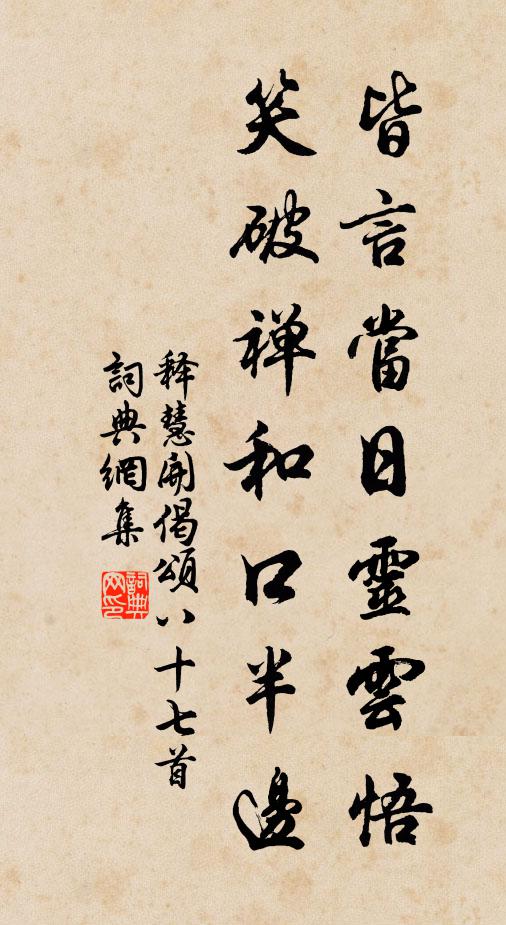 皆言當日靈雲悟
笑破禅和口半邊
释慧開偈頌八十七首
詞典網集
詞典网印